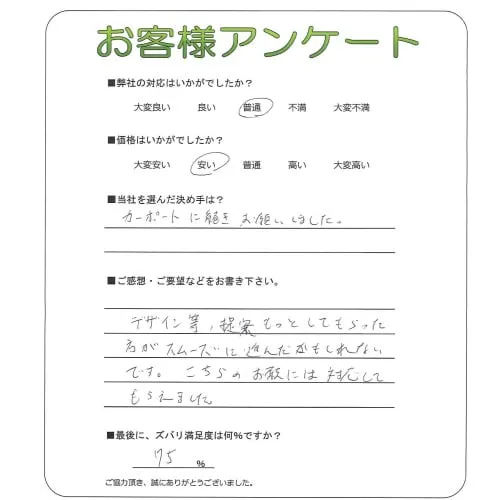 お客様アンケート
■弊社の対応はいかがでしたか?
大変良い 良い 普通 不満 大変不満
■価格はいかがでしたか?
大変安い 安い 普通 高い 大変高い
■当社を選んだ決め手は?
カーポートに続きお願いしました。
■ご感想・ご要望などをお書き下さい。
デザイン等、提案もっとしてもらった
方がスムーズに進んだかもしれない
です。こちらのお願には対応して
もらえました。
■最後に、ズバリ満足度は何%ですか?
75 %
ご協力頂き、誠にありがとうございました。